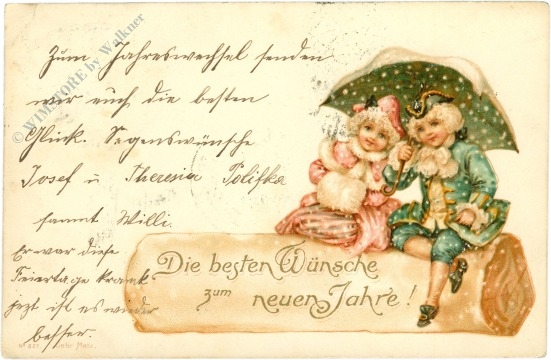 Zum Jahreswechsel senden
wir euch die besten
Glück. Segenswünsche
Josef u Theresia Polifka
sammt Willi.
Er war diese
Feiertage krank
jezt ist es wieder
besser.
Die besten Wünsche
zum neuen Jahre!
© WIMSTORE by Walkner